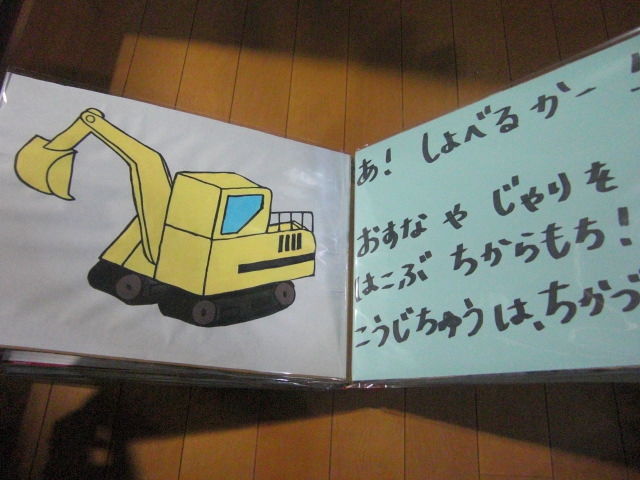 あ! しょべるかー
おすな や じゃり を
はこぶ ちからもち!
こうじちゅう は、ちかづ